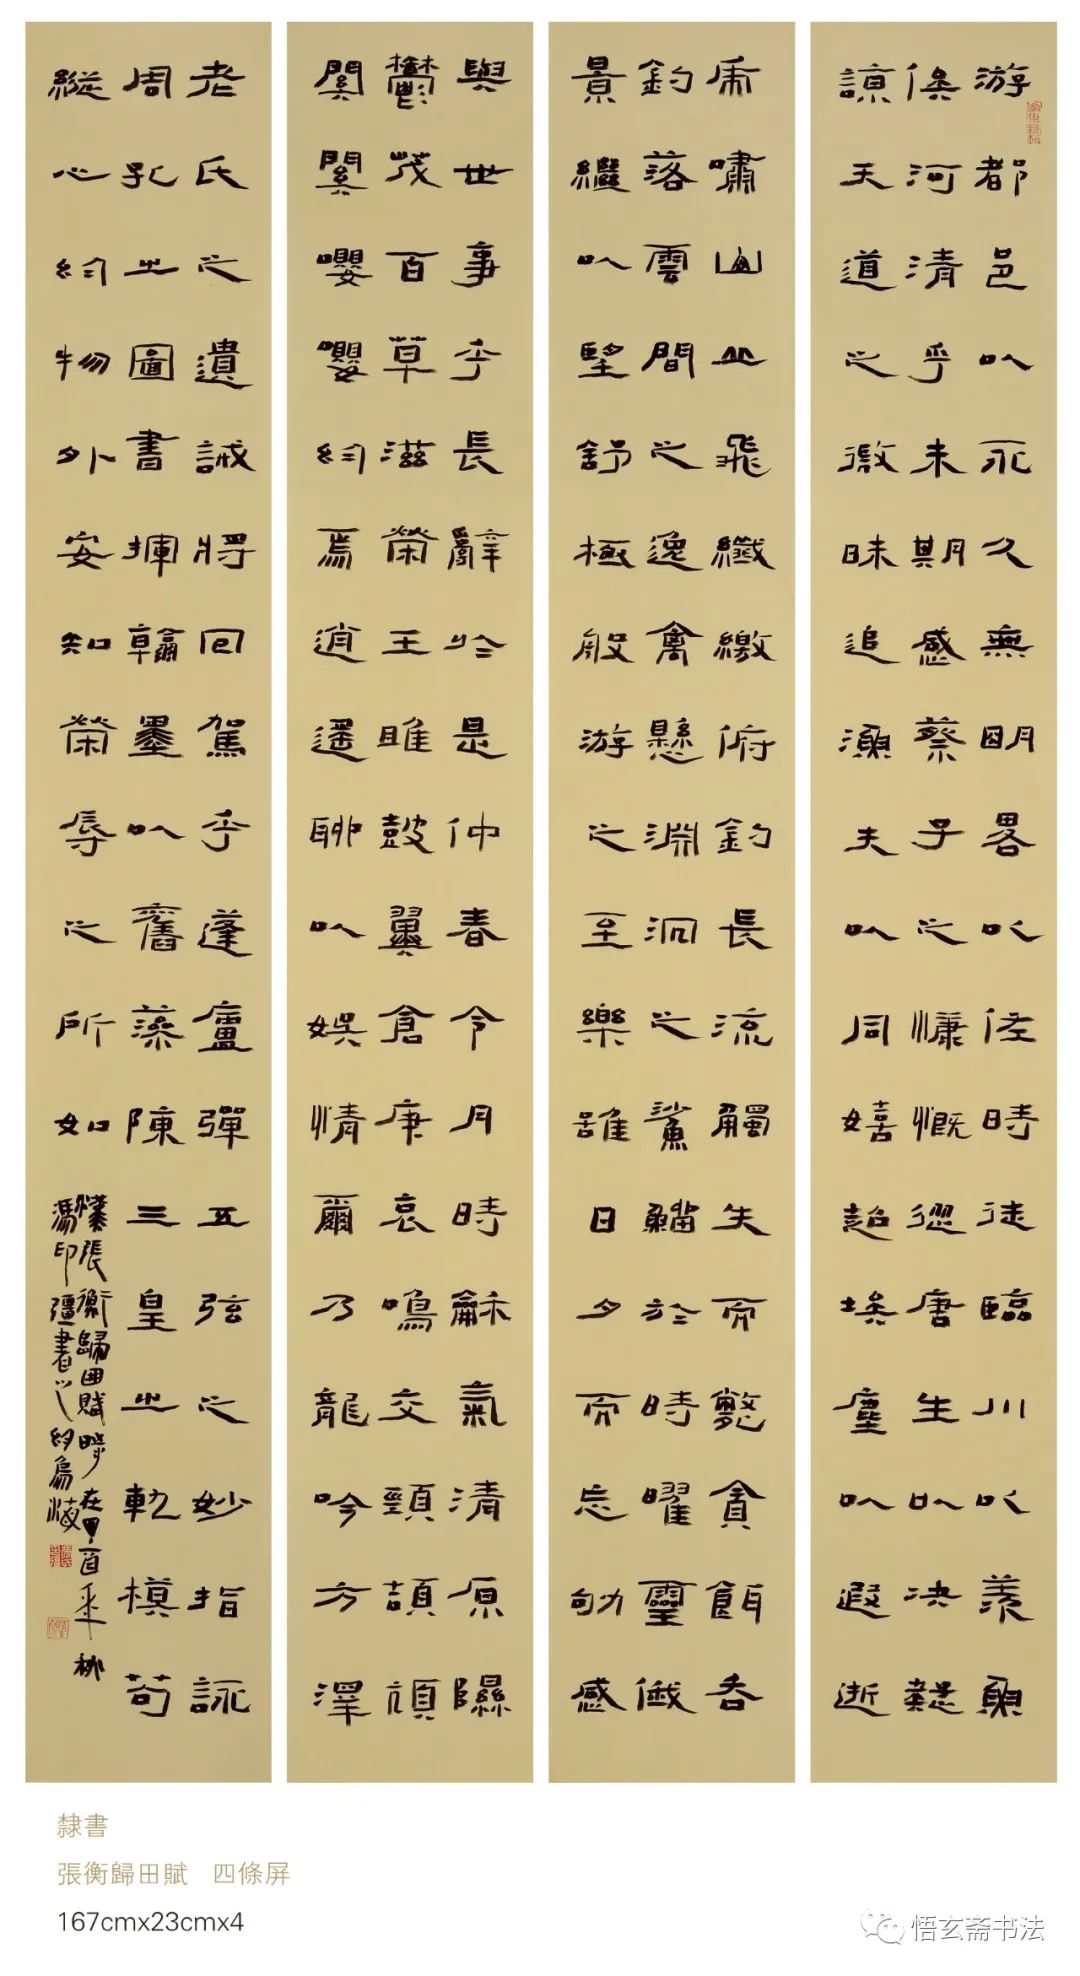 游都邑以永久無明畧以佐時徒臨川以羨魚
俟河清乎未期感蔡子之慷慨從唐生以決疑
諒天道之微昧追漁夫以同嬉超埃塵以遐逝
虎嘯山丘飛纖繳俯釣長流觸矢而斃貪餌吞
釣落雲間之逸禽懸淵沉之鯊鰡於時曜靈俄
景繼以望舒極般游之至樂雖日夕而忘劬感
與世事乎長辭於是仲春令月時龢氣清原隰
鬱茂百草滋榮王雎鼓翼倉庚哀鳴交頸頡頏
關關嚶嚶於焉逍遙聊以娛情爾乃龍吟方澤
老氏之遺誡將回駕乎蓬廬彈五弦之妙指詠
周孔之圖書揮翰墨以奮藻陳三皇之軌模苟
縱心於物外安知榮辱之所如
漢張衡歸田賦時在
馮印疆書之於烏海
隸書
張衡歸田賦 四條屏
167cmx23cmx4
悟玄斋书法